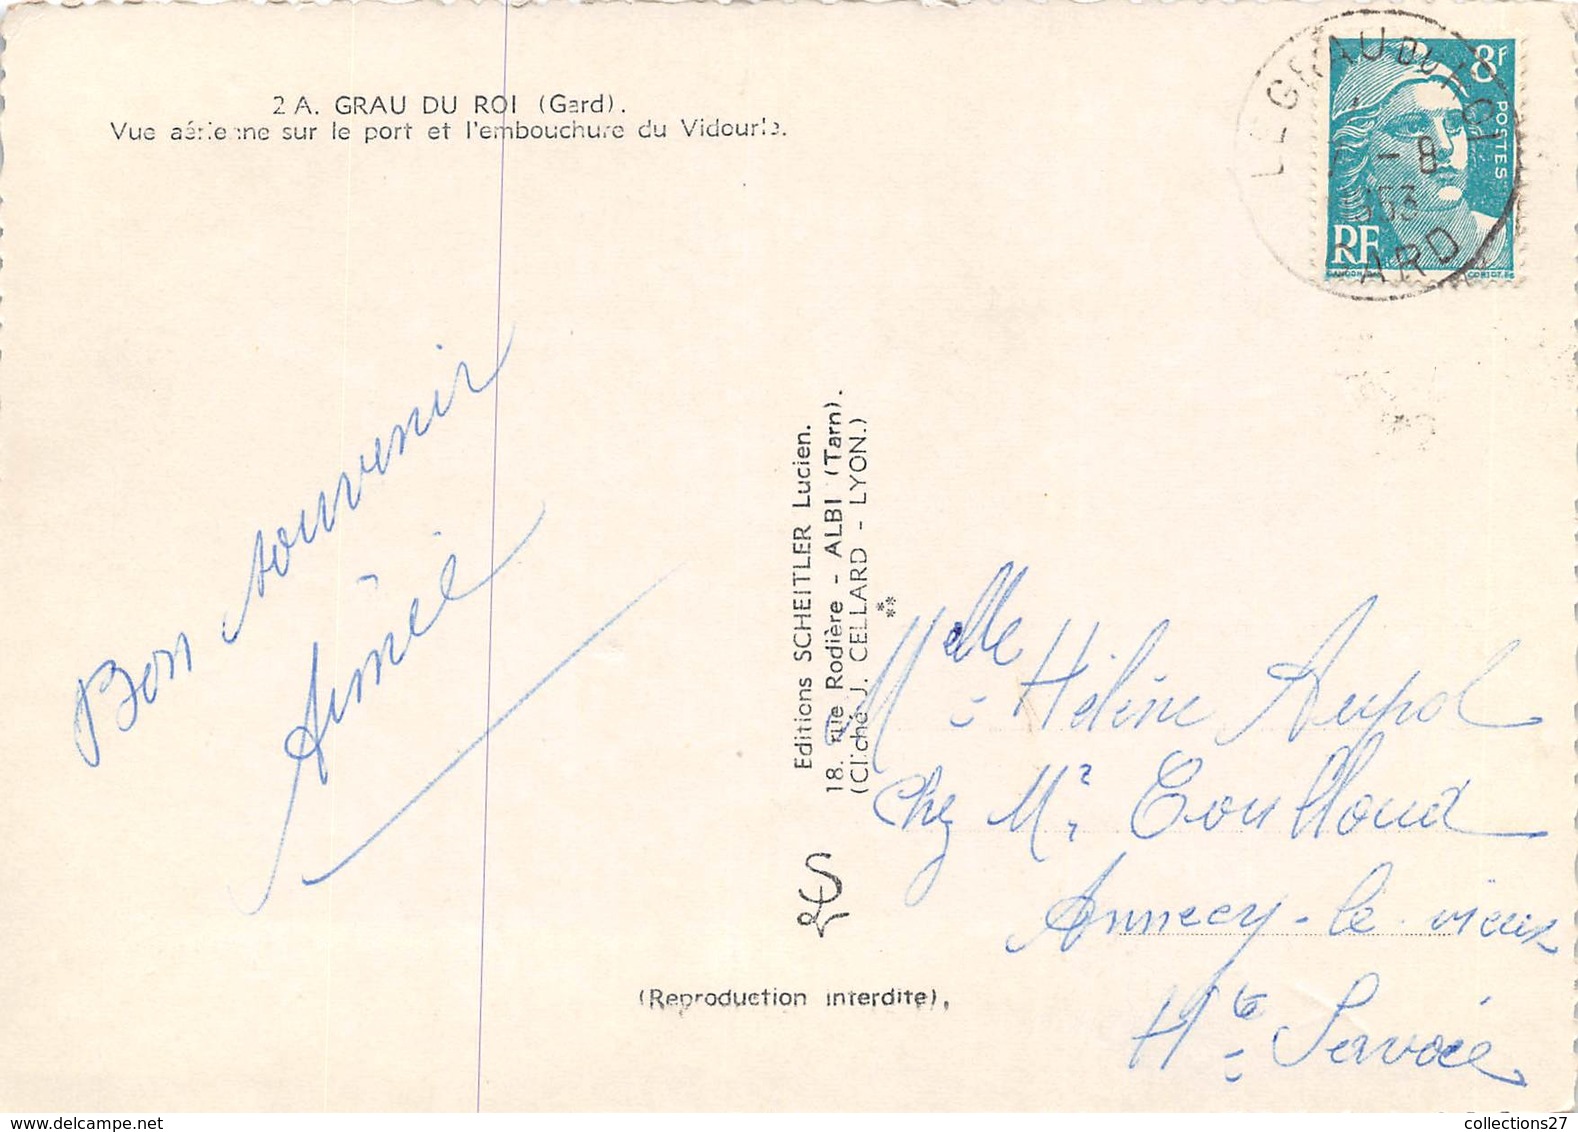 2 A. GRAU DU ROI (Gard).
Vue aérienne sur le port et l'embouchure du Vidourle.
LE GRAU DU ROI
- 8
953
GARD
8f
POSTES
RF
GANDON
CORTOT
Bon souvenir
Aimée
Editions SCHEITLER Lucien.
18. rue Rodière - ALBI (Tarn).
(Cliché J. CELLARD - LYON.)
Melle Hélène Aupol
Chez Mr Coulloud
Annecy-le vieux
Hte Savoie
(Reproduction interdite).
collections27